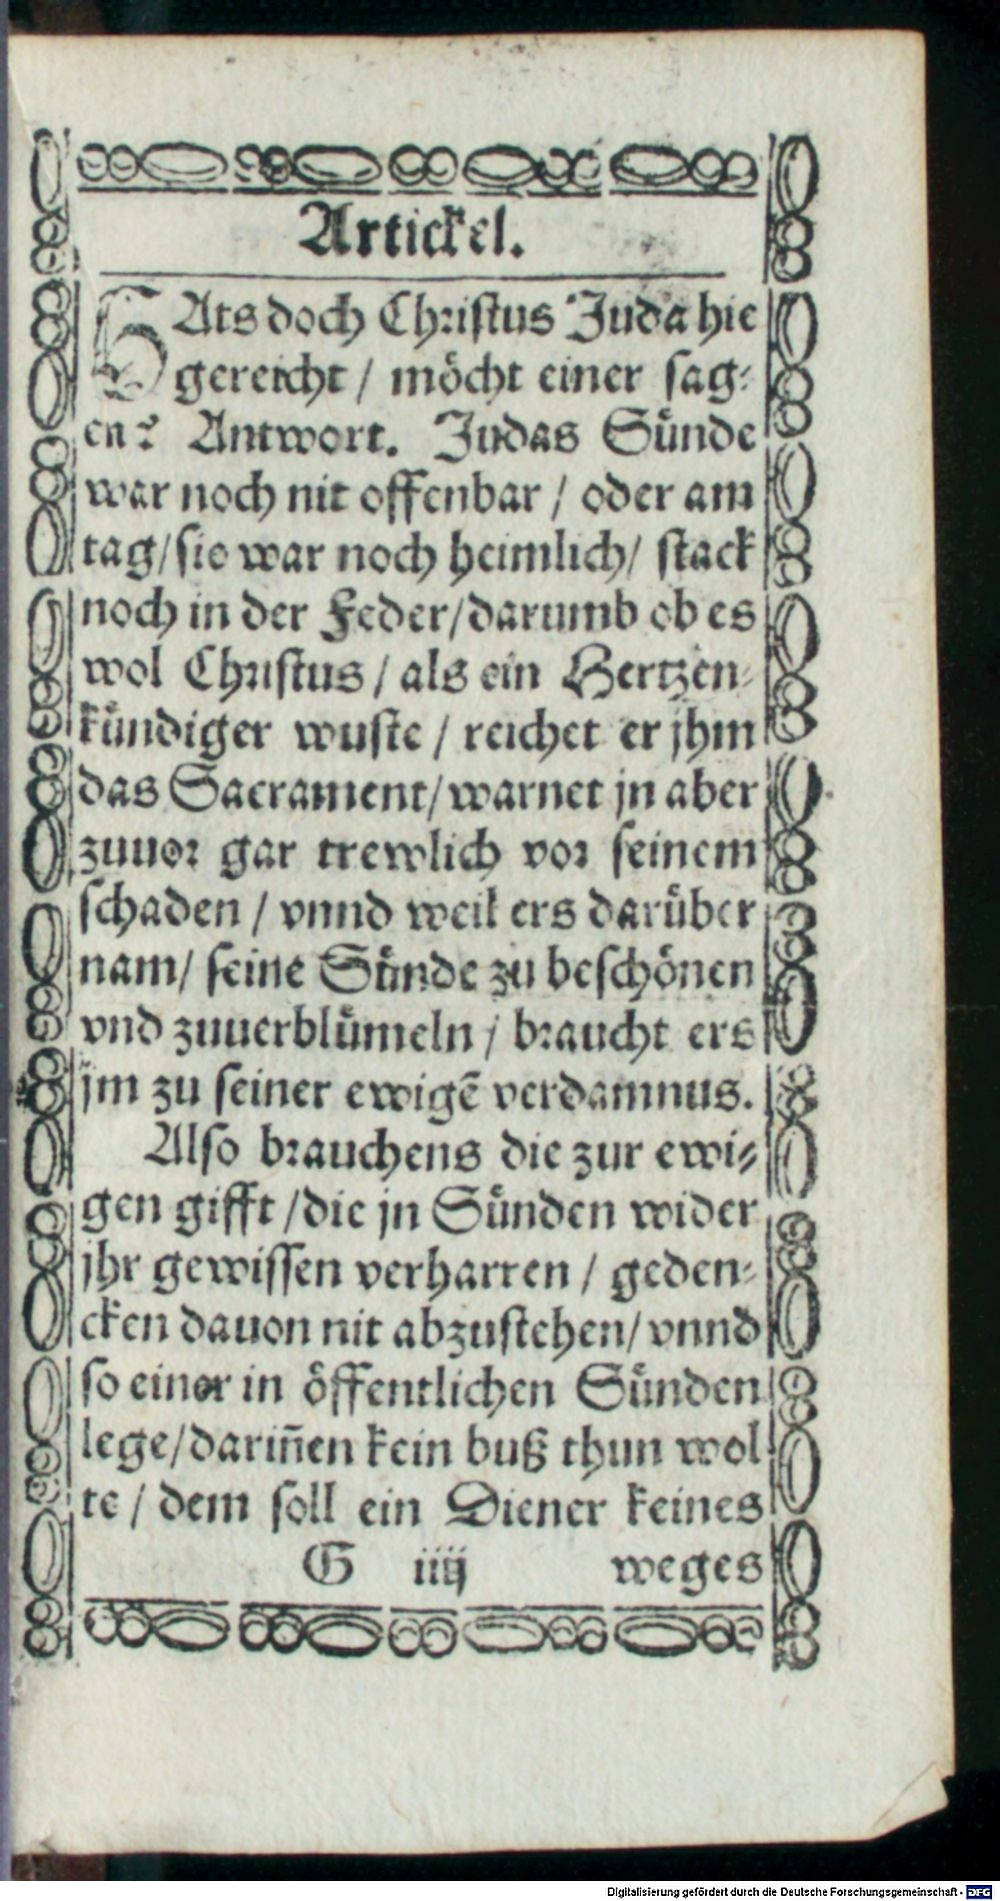 Artickel.
HAts doch Christus Juda hie
gereicht / möcht einer sag-
en? Antwort. Judas Sünde
war noch nit offenbar / oder am
tag/ sie war noch heimlich/ stack
noch in der Feder/darumb ob es
wol Christus / als ein Hertzen-
kündiger wuste / reichet er jhm
das Sacrament/warnet jn aber
zuuor gar trewlich vor seinem
schaden / vnnd weil ers darüber
nam/ seine Sünde zu beschönen
vnd zuuerblümeln / braucht ers
jm zu seiner ewigē verdamnus.
Also brauchens die zur ewi-
gen gifft /die jn Sünden wider
jhr gewissen verharren / geden-
cken dauon nit abzustehen/ vnnd
so einer in öffentlichen Sünden
lege/dariñen kein buß thun wol
te / dem soll ein Diener keines
G iiij weges
Digitalisierung gefördert durch die Deutsche Forschungsgemeinschaft - DFG